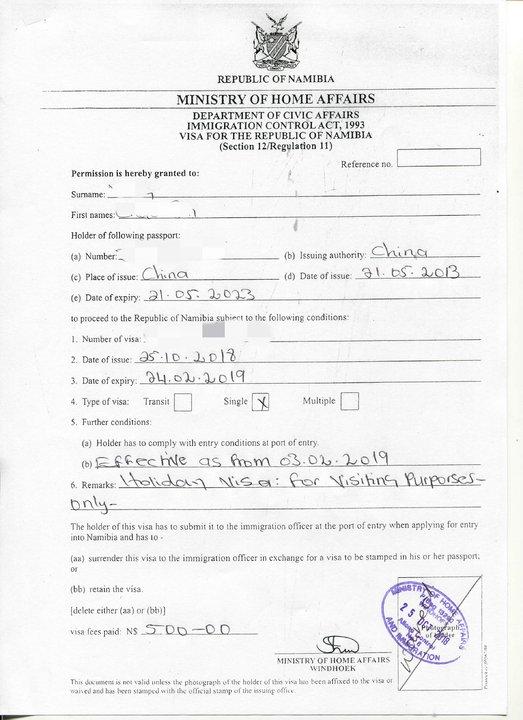 REPUBLIC OF NAMIBIA
MINISTRY OF HOME AFFAIRS
DEPARTMENT OF CIVIC AFFAIRS
IMMIGRATION CONTROL ACT, 1993
VISA FOR THE REPUBLIC OF NAMIBIA
(Section 12/Regulation 11)
Reference no.
Permission is hereby granted to:
Surname:
First names:
Holder of following passport:
(a) Number: (b) Issuing authority: China
(c) Place of issue: China (d) Date of issue: 21.05.2013
(e) Date of expiry: 21.05.2023
to proceed to the Republic of Namibia subject to the following conditions:
1. Number of visa:
2. Date of issue: 25.10.2018
3. Date of expiry: 24.02.2019
4. Type of visa: Transit Single X Multiple
5. Further conditions:
(a) Holder has to comply with entry conditions at port of entry.
(b) Effective as from 03.02.2019
6. Remarks: Holiday Visa: For Visiting Purporses-
only-
The holder of this visa has to submit it to the immigration officer at the port of entry when applying for entry
into Namibia and has to -
(aa) surrender this visa to the immigration officer in exchange for a visa to be stamped in his or her passport;
or
(bb) retain the visa.
[delete either (aa) or (bb)]
visa fees paid: N$ 500-00
MINISTRY OF HOME AFFAIRS
AND IMMIGRATION
25 OCT 2018
Photograph
of holder
MINISTRY OF HOME AFFAIRS
WINDHOEK
This document is not valid unless the photograph of the holder of this visa has been affixed to the visa or
waived and has been stamped with the official stamp of the issuing office.